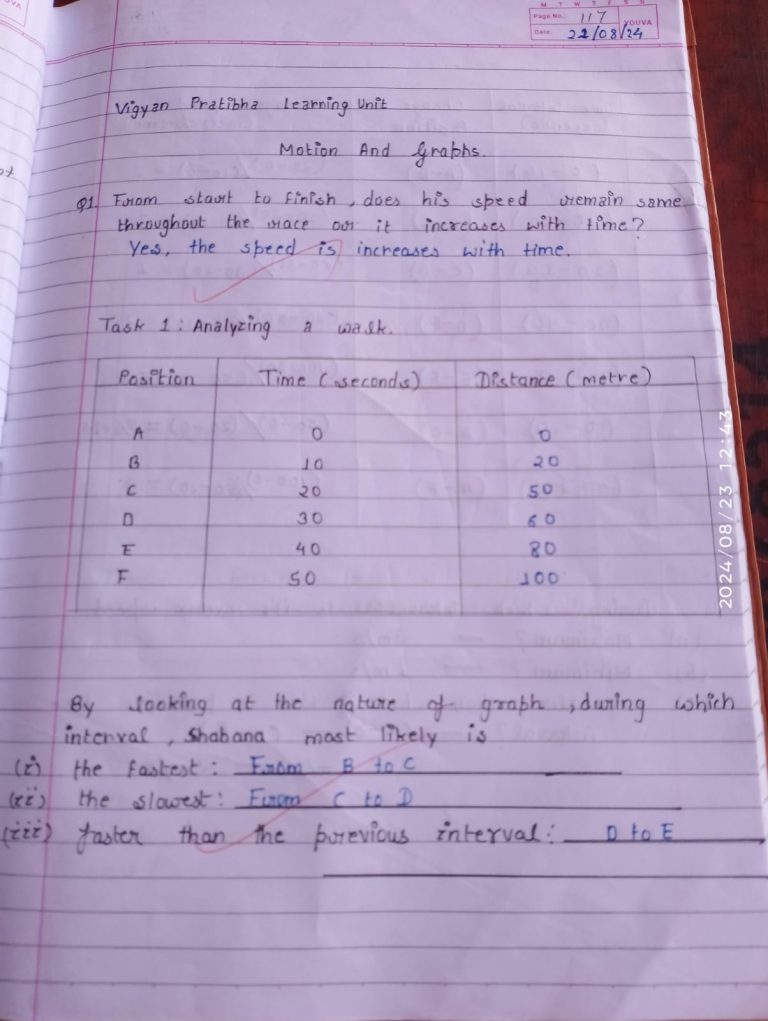 M T W T F S S
Page No.: 117
YOUVA
Date: 22/08/24
Vigyan Pratibha Learning Unit
Motion And Graphs.
Q1 From start to finish, does his speed remain same
throughout the race or it increases with time?
Yes, the speed is increases with time.
Task 1: Analyzing a walk.
Position Time (seconds) Distance (metre)
A 0 0
B 10 20
C 20 50
D 30 60
E 40 80
F 50 100
By looking at the nature of graph, during which
interval, Shabana most likely is
(i) the fastest: From B to C
(ii) the slowest: From C to D
(iii) faster than the previous interval: D to E
2024/08/23 12:43